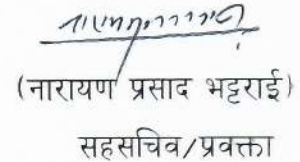 (नारायण प्रसाद भट्टराई)
सहसचिव/प्रवक्ता